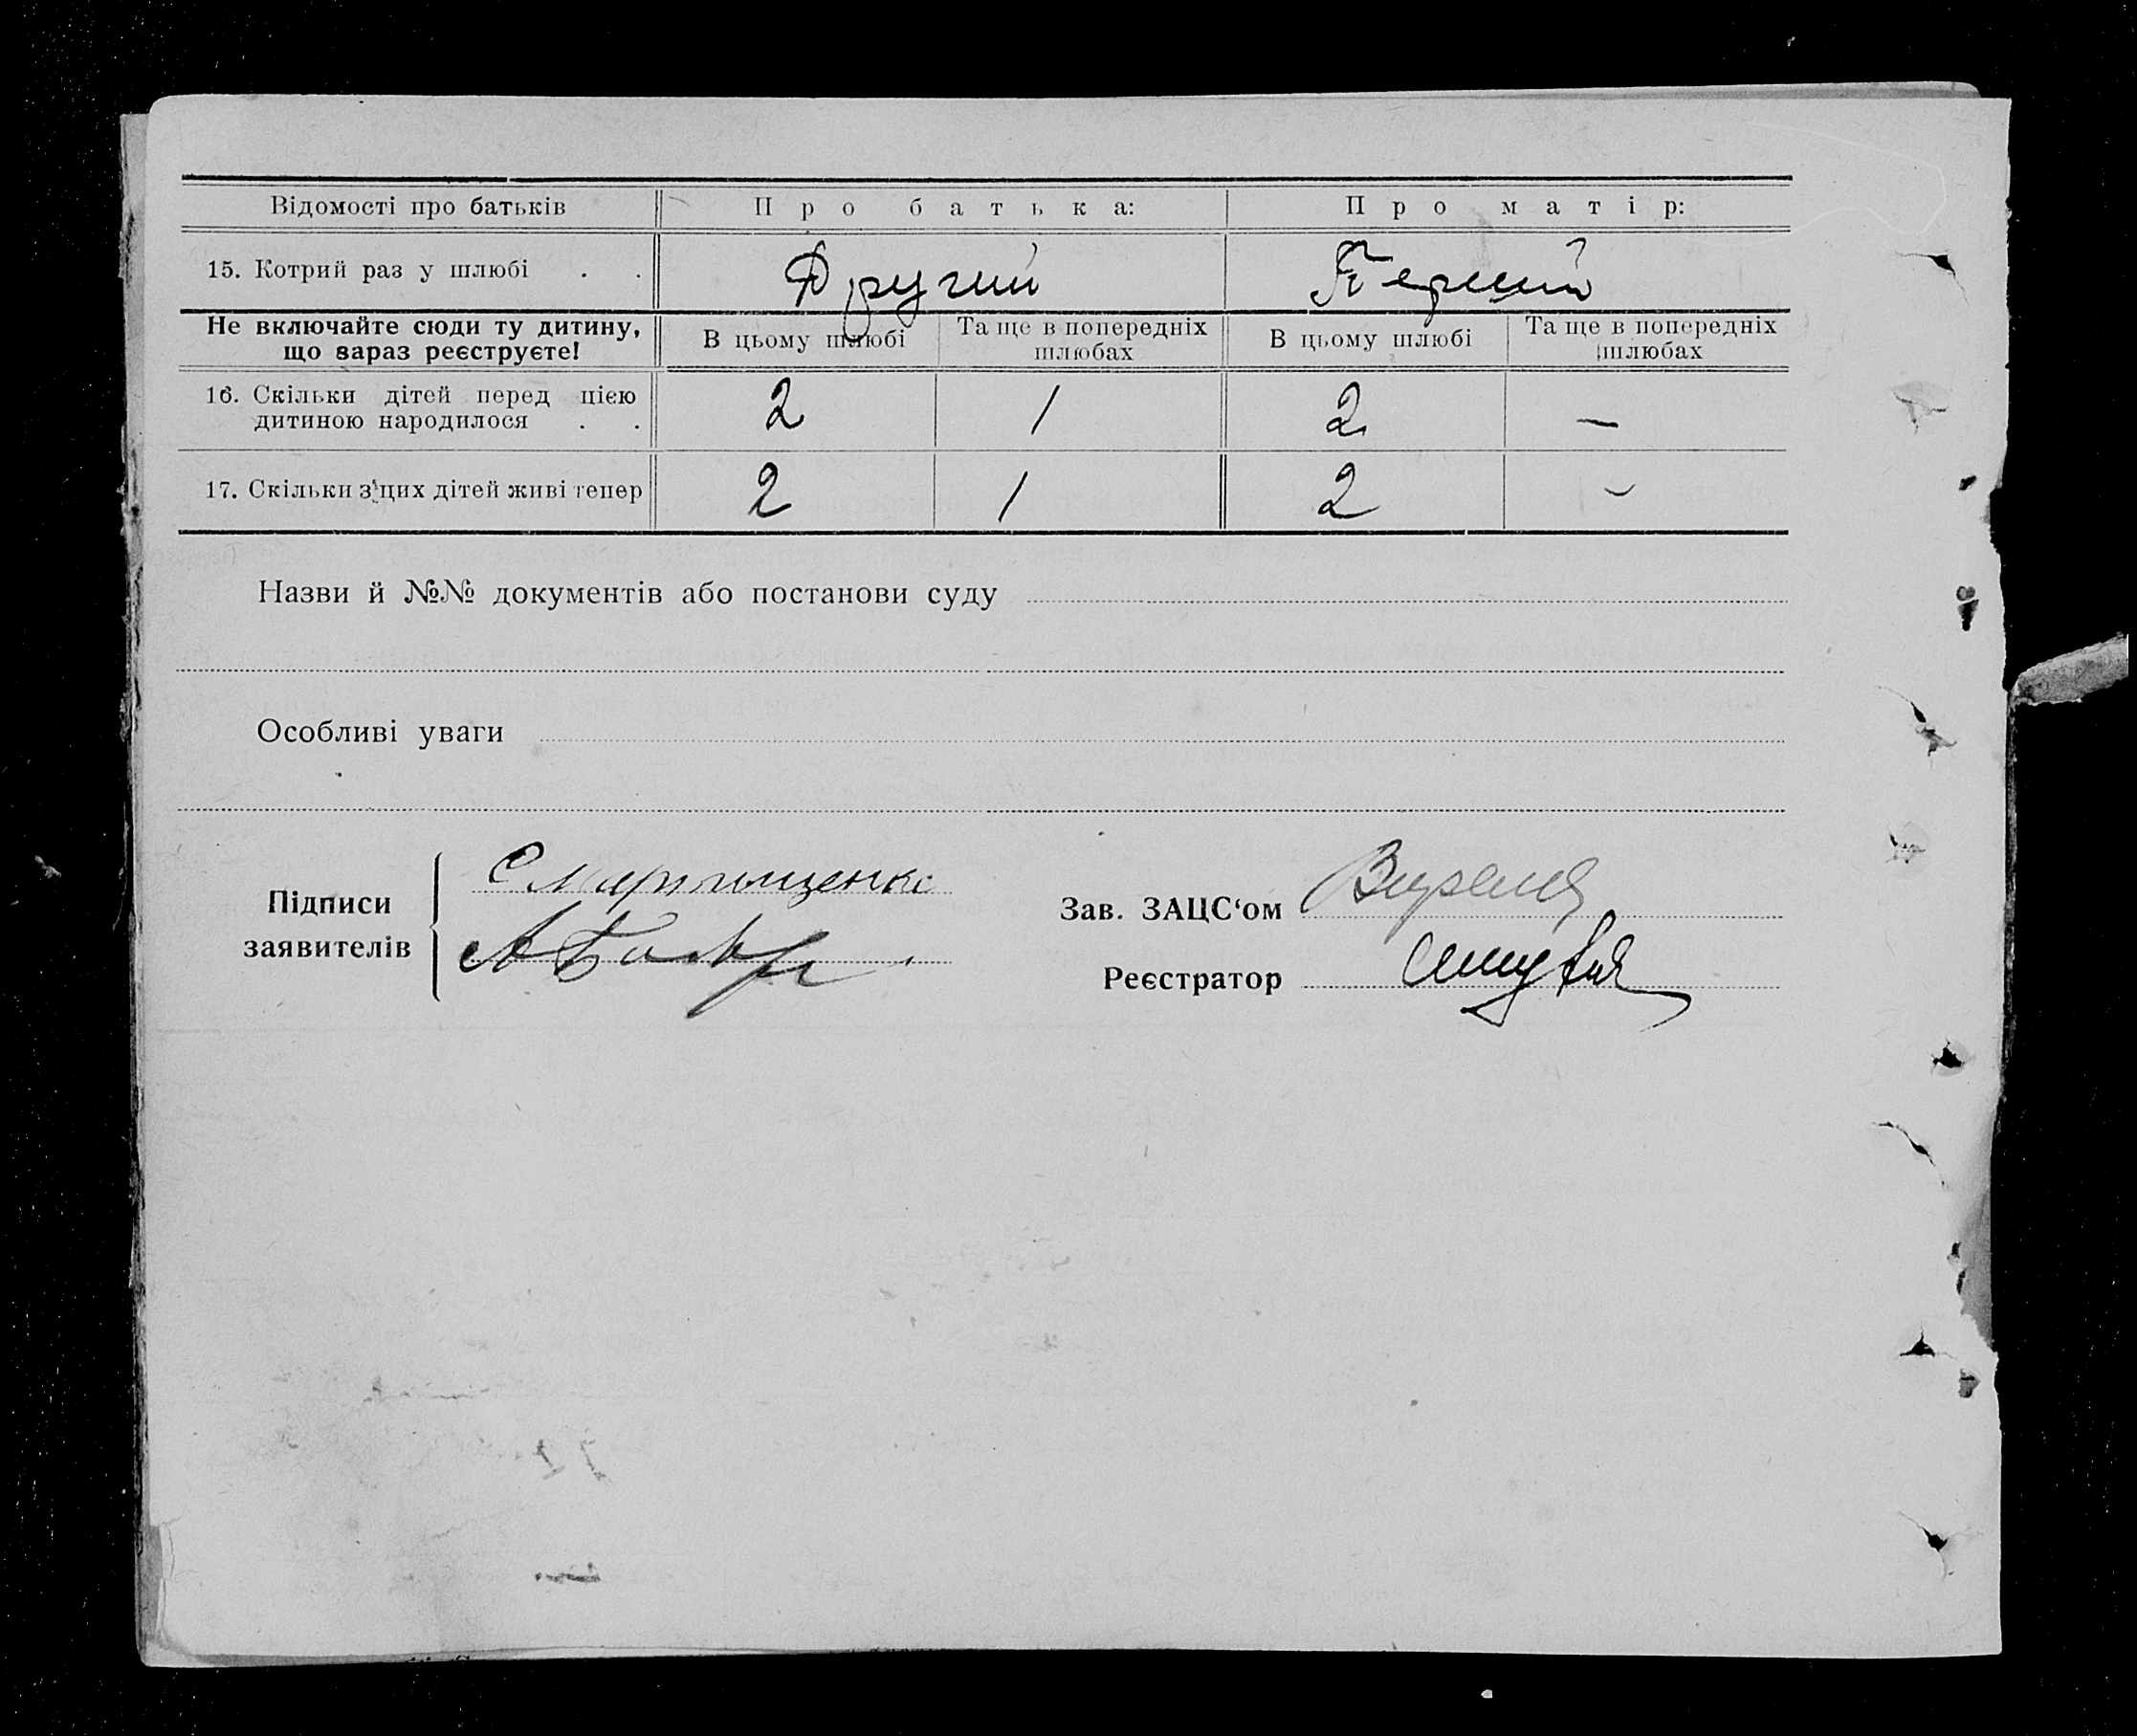 Відомості про батьків Про батька: Про матір:
15. Котрий раз у шлюбі . . Другий Перший
Не включайте сюди ту дитину, що зараз реєструєте!
В цьому шлюбі Та ще в попередніх шлюбах В цьому шлюбі Та ще в попередніх шлюбах
16. Скільки дітей перед цією
дитиною народилося . . 2 1 2 —
17. Скільки з цих дітей живі тепер 2 1 2 -
Назви й №№ документів або постанови суду
Особливі уваги
Підписи
заявителів
Зав. ЗАЦС‘ом
Реєстратор